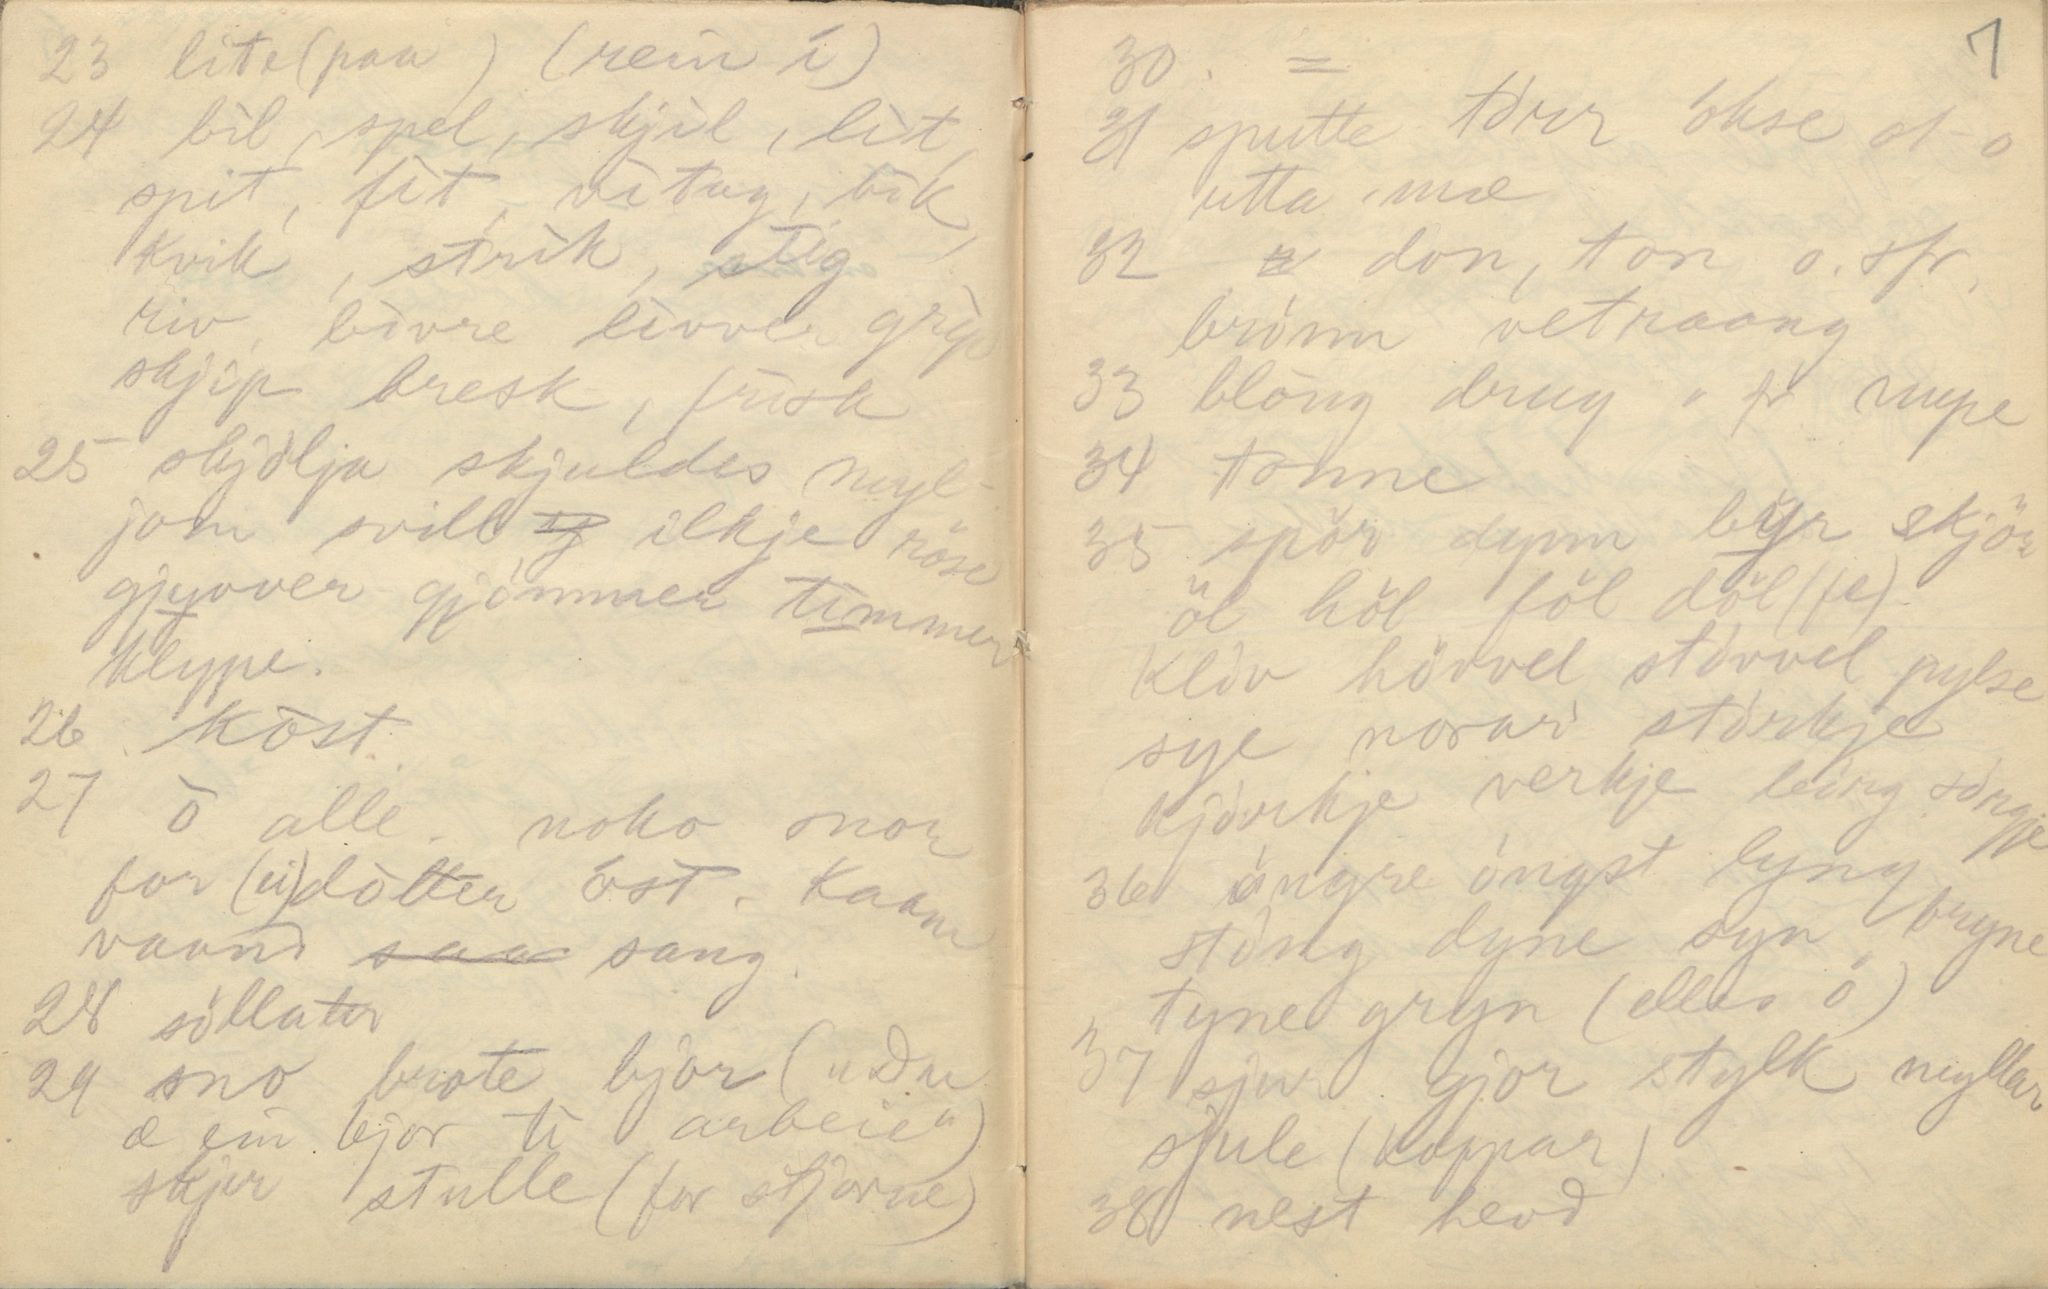 23 lite (paa) (rein i)
24 bìl, spel, skjìl, lìt,
spit, fìt, vìtug, bìk,
kvìk, strìk, stìg
riv, bìvre lìvver grìp
skjip bresk, frìsk
25 skjölja skjuldes myl-
jom svill ilkje röse
gjyvver gjömmer timmer
klype.
26 köst
27 ò alle. noko snor
for (ei) dòtter òst. kaann
vaand saa sang.
28 söllater
29 sno brote bjor („Du
æ ein bjor ti arbeie“)
skjer stulle (for stjorne)
7
30. =
31 sputte törr ökse
utta mæ
32 don, ton o. sfr.
brönn vetraang
33 blöng drug nupe
34 tonne
35 spör dynn byr skjör
öl höl föl döl (fe)
klöv hövvel stövvel pylse
sye norar störkje
kjörkje verkje leing söngje
36 öngre öngst lyng
stöng dyne syn bryne
tyne gryn (elles ö)
37 sjur gjor stylk myllar
sjule (koppar)
38 nest hevd